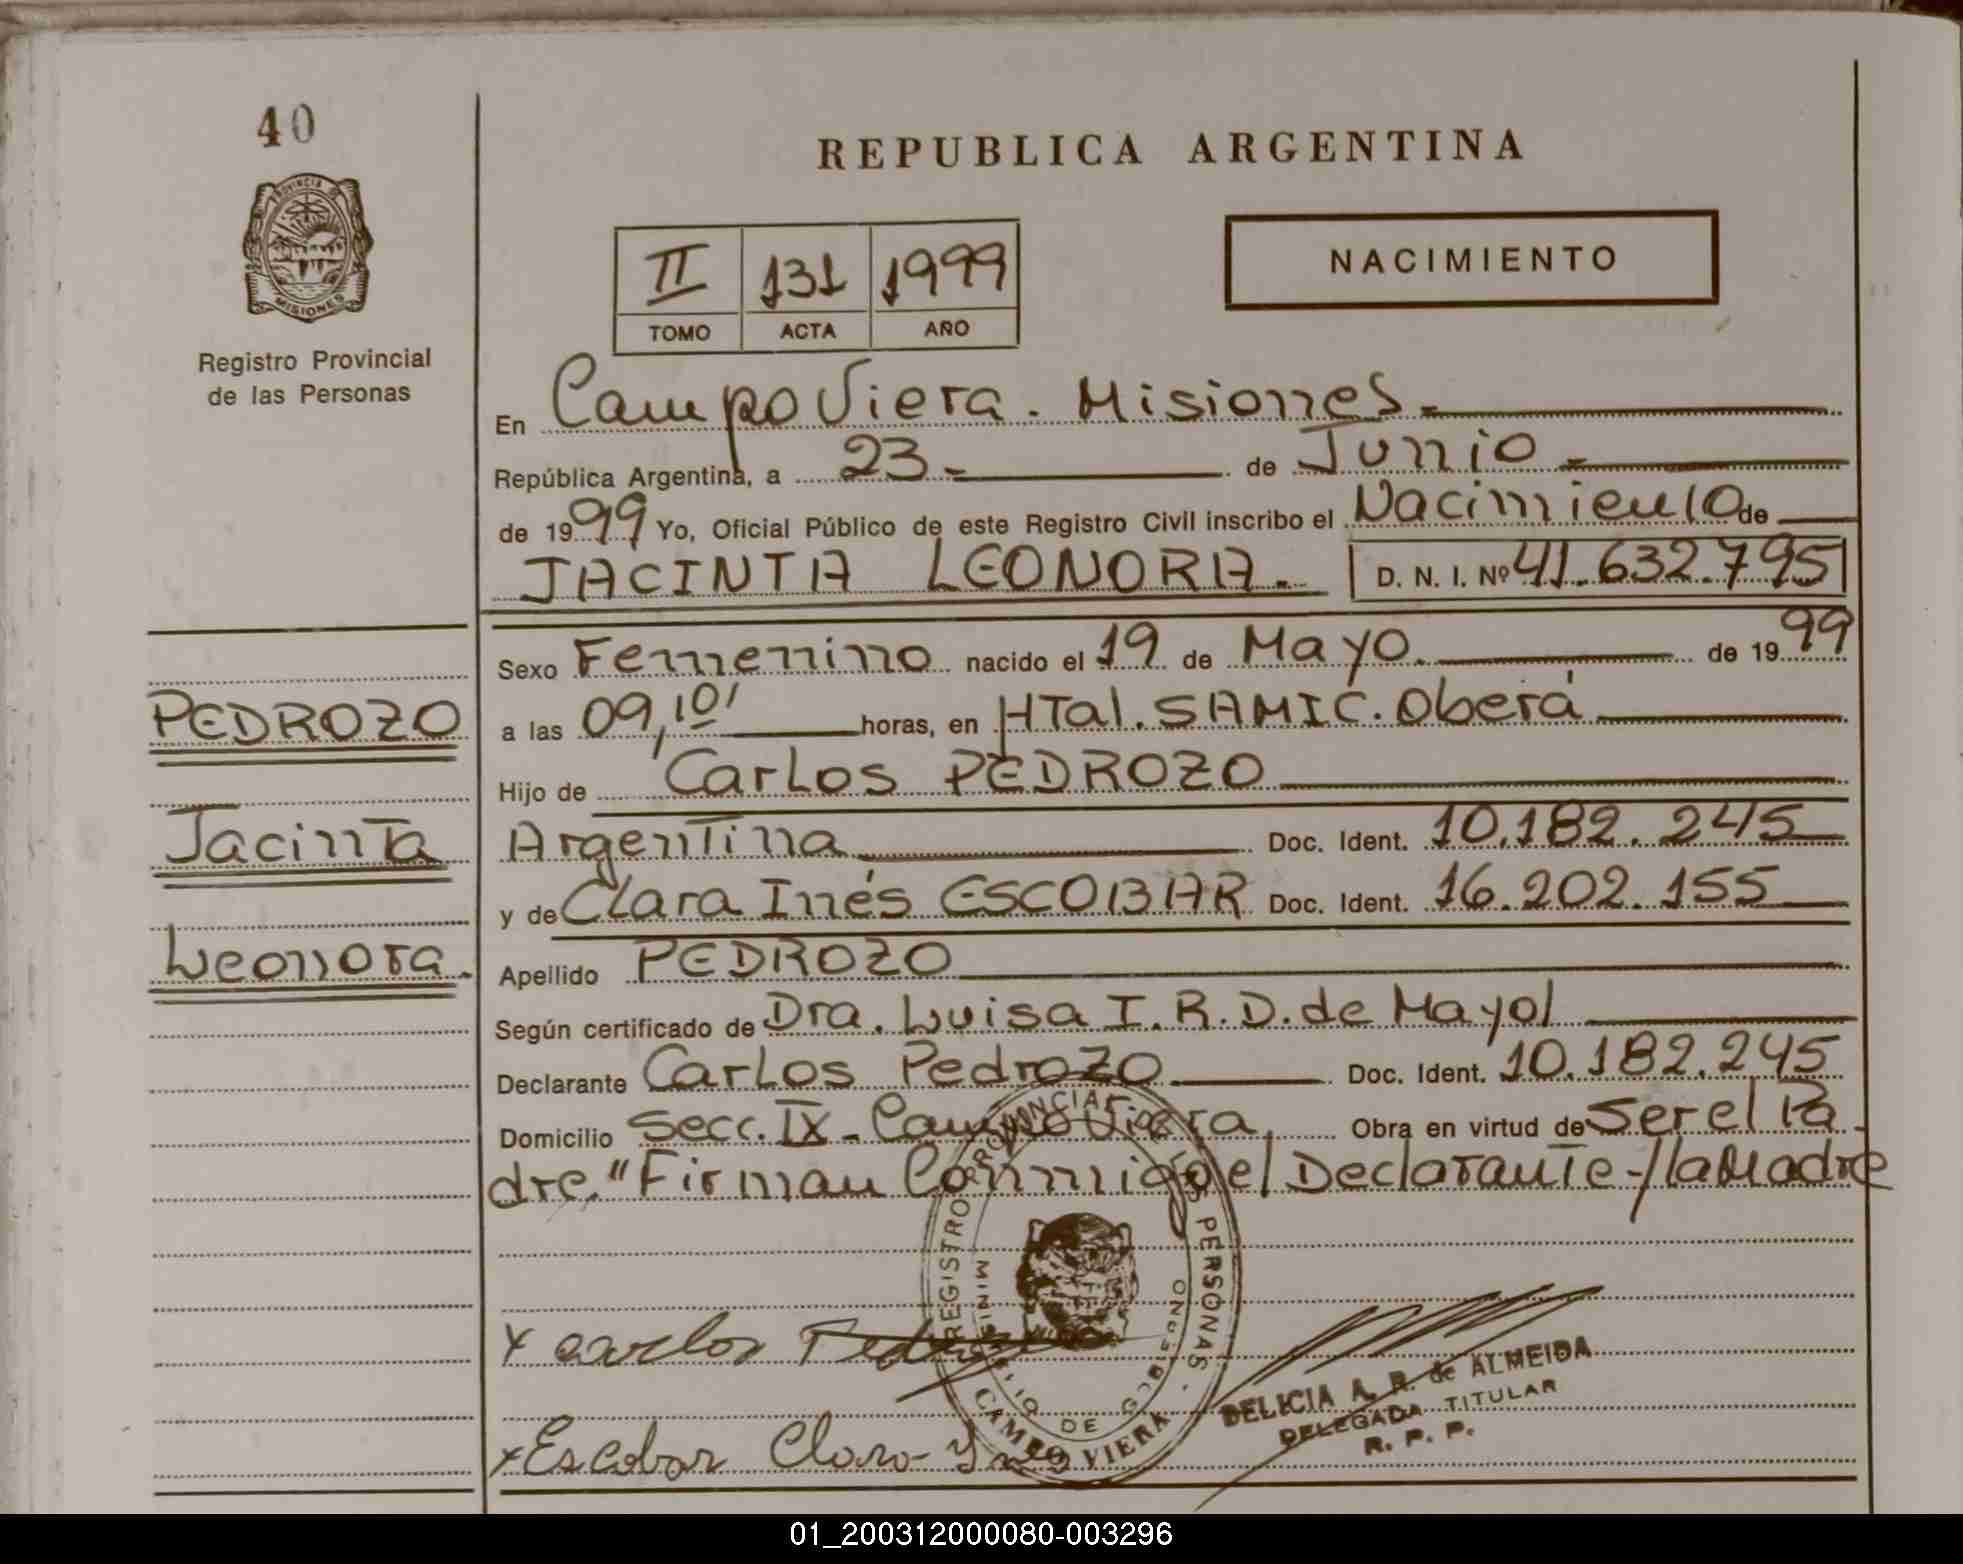 40
PROVINCIA DE
MISIONES
Registro Provincial
de las Personas
REPUBLICA ARGENTINA
II 131 1999
TOMO ACTA AÑO
NACIMIENTO
En Campo Viera. Misiones.
República Argentina, a 23 de Junio
de 1999 Yo, Oficial Público de este Registro Civil inscribo el Nacimiento de
JACINTA LEONORA. D. N. I. Nº 41.632.795
Sexo Femenino nacido el 19 de Mayo. de 1999
a las 09,10' horas, en HTal. SAMIC. Oberá
Hijo de Carlos PEDROZO
Argentina Doc. Ident. 10.182.245
y de Clara Inés ESCOBAR Doc. Ident. 16.202.155
Apellido PEDROZO
Según certificado de Dra. Luisa I. R. D. de Mayol
Declarante Carlos Pedrozo Doc. Ident. 10.182.245
Domicilio Secc. IX - Campo Viera, Obra en virtud de Ser el Pa
dre." Firman Conmigo el Declarante-/la Madre
PEDROZO
Jacinta
Leonora.
REGISTRO PROVINCIAL PERSONAS
DE
CAMPO VIERA
x carlos Pedrozo
x Escobar Clara Ines
DELICIA A. R. de ALMEIDA
DELEGADA TITULAR
R. P. P.
01_200312000080-003296